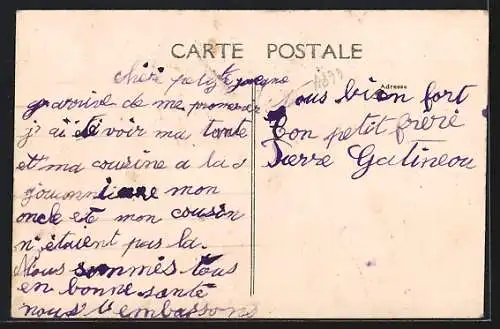 CARTE POSTALE
Adresse
Chère petite
j'arrive de me promener
j'ai été voir ma tante
et ma cousine a la s
mon
oncle et mon cousin
n'étaient pas la.
Nous sommes tous
en bonne santé
nous t'embrassons
Tous bien fort
Ton petit frère
Pierre Gatineau